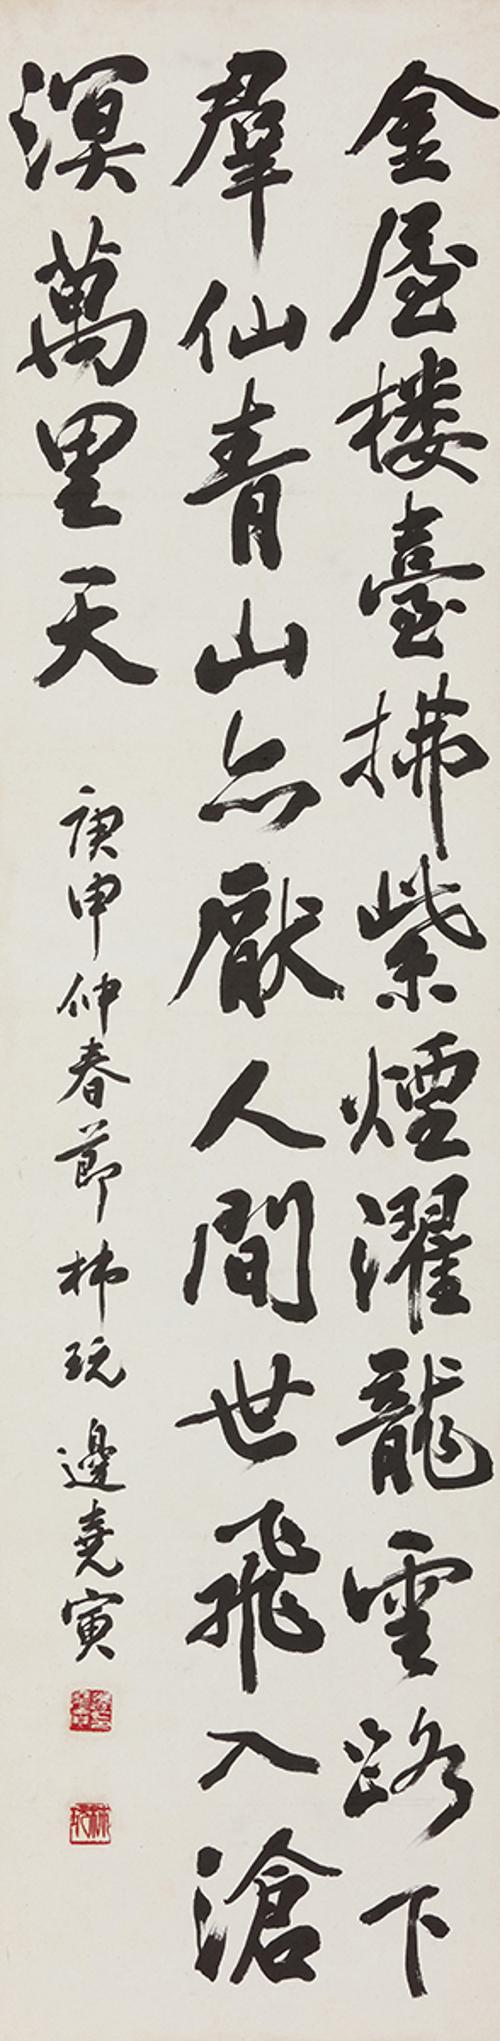 金屋楼臺拂紫煙濯龍雲路下
羣仙青山亦厭人間世飛入滄
溟萬里天
庚申仲春節 林玩 邊堯寅